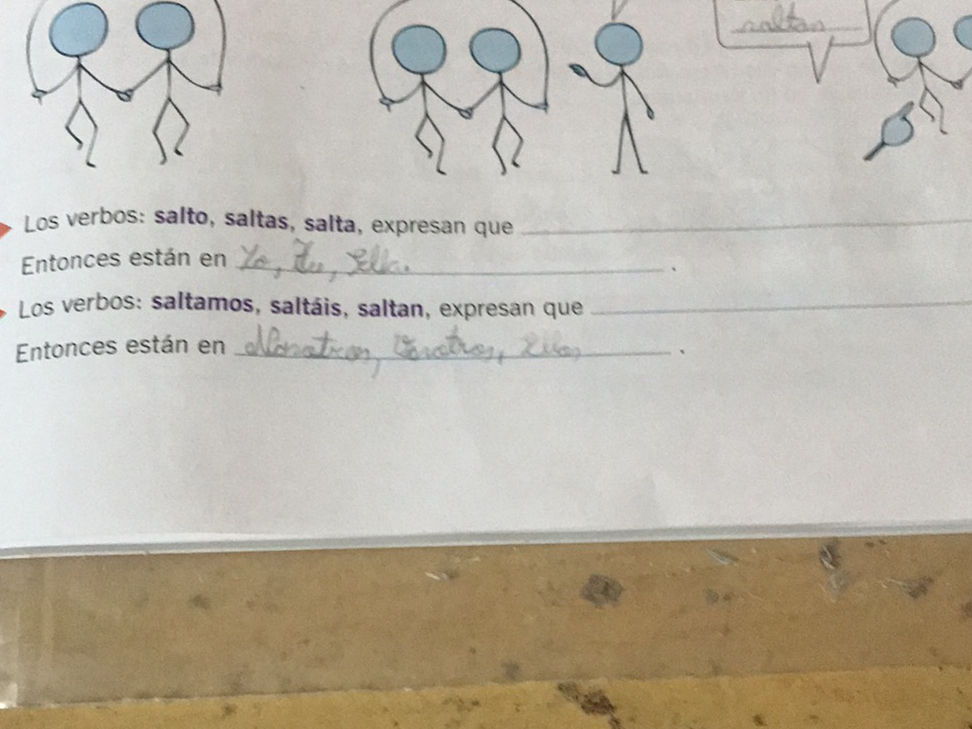 saltan
Los verbos: salto, saltas, salta, expresan que
Entonces están en Yo, Tu, Ella.
Los verbos: saltamos, saltáis, saltan, expresan que
Entonces están en Nosotros, Vosotros, Ellos